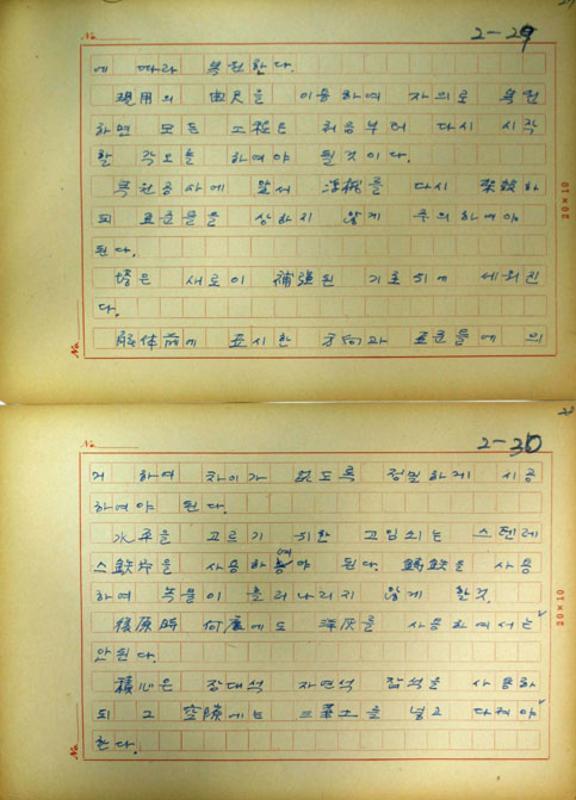 No.
2-29
에 따라 복원한다.
現用의 曲尺을 이용하여 자의로 복원
하면 모든 工程은 처음부터 다시 시작
할 각오를 하여야 될것이다.
복원공사에 앞서 를 다시 架設하
되 표준물을 상하지 않게 주의하여야
된다.
塔은 새로이 補强된 기초위에 세워진
다.
解体前에 표시한 方向과 표준물에 의
No.
20×10
2-30
거 하여 차이가 없도록 정밀하게 시공
하여야 된다.
水平을 고르기 위한 고임쇠는 스텐레
스鉄片을 사용하여야 된다. 鑄鉄을 사용
하여 녹물이 흘러나리지 않게 할것.
復原時 何處에도 洋灰를 사용하여서는
안된다.
積心은 장대석 자연석 잡석을 사용하
되 그 空隙에는 三華土를 넣고 다져야
한다.
No.
20×10